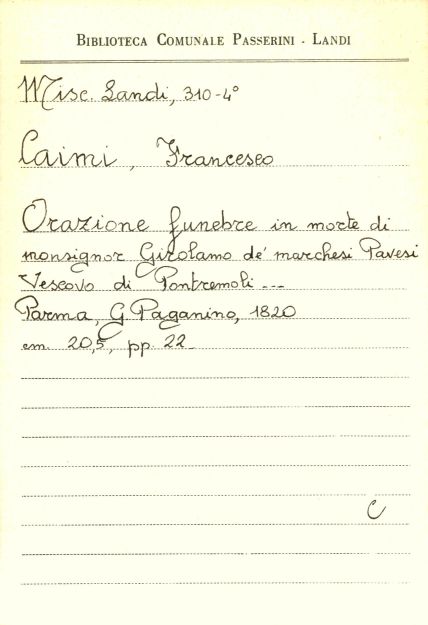 BIBLIOTECA COMUNALE PASSERINI - LANDI
Misc. Landi, 310-4°
Caimi, Francesco
Orazione funebre in morte di
monsignor Girolamo de' marchesi Pavesi
Vescovo di Pontremoli ---
Parma, G Paganino, 1820
cm. 20,5, pp. 22
C